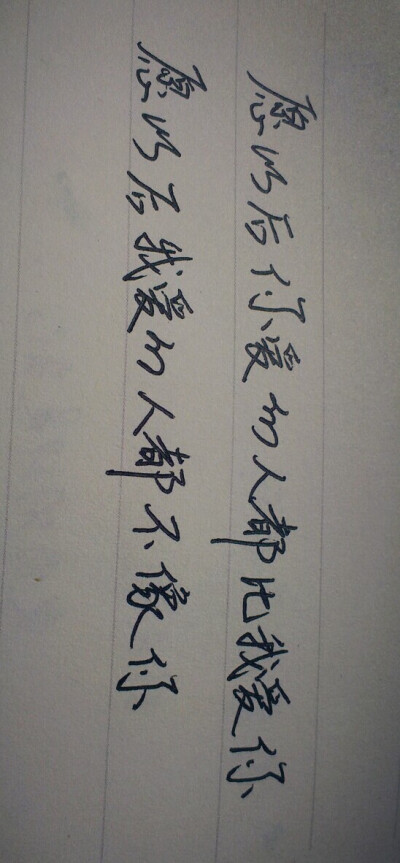 愿以后你爱的人都比我爱你
愿以后我爱的人都不像你